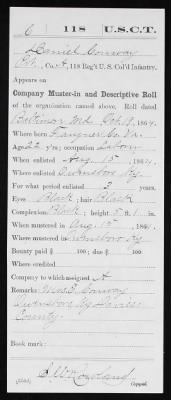 C | 118 | U.S.C.T.
Daniel Conway
Pvt., Co. A, 118 Reg't U. S. Col'd Infantry.
Appears on
Company Muster-in and Descriptive Roll
of the organization named above. Roll dated
Baltimore Md. Oct 19, 1864.
Where born Fauquier Co. Va.
Age 22 y'rs; occupation Labor
When enlisted Aug. 15, 1864.
Where enlisted Owensboro Ky.
For what period enlisted 3 years.
Eyes Black; hair Black
Complexion Black; height 5 ft. 1 in.
When mustered in Aug. 15, 1864.
Where mustered in Owensboro Ky
Bounty paid $ 100; due $ 100
Where credited
Company to which assigned A
Remarks: Conway
Owensboro Ky Daviess
County.
Book mark:
Copyist.